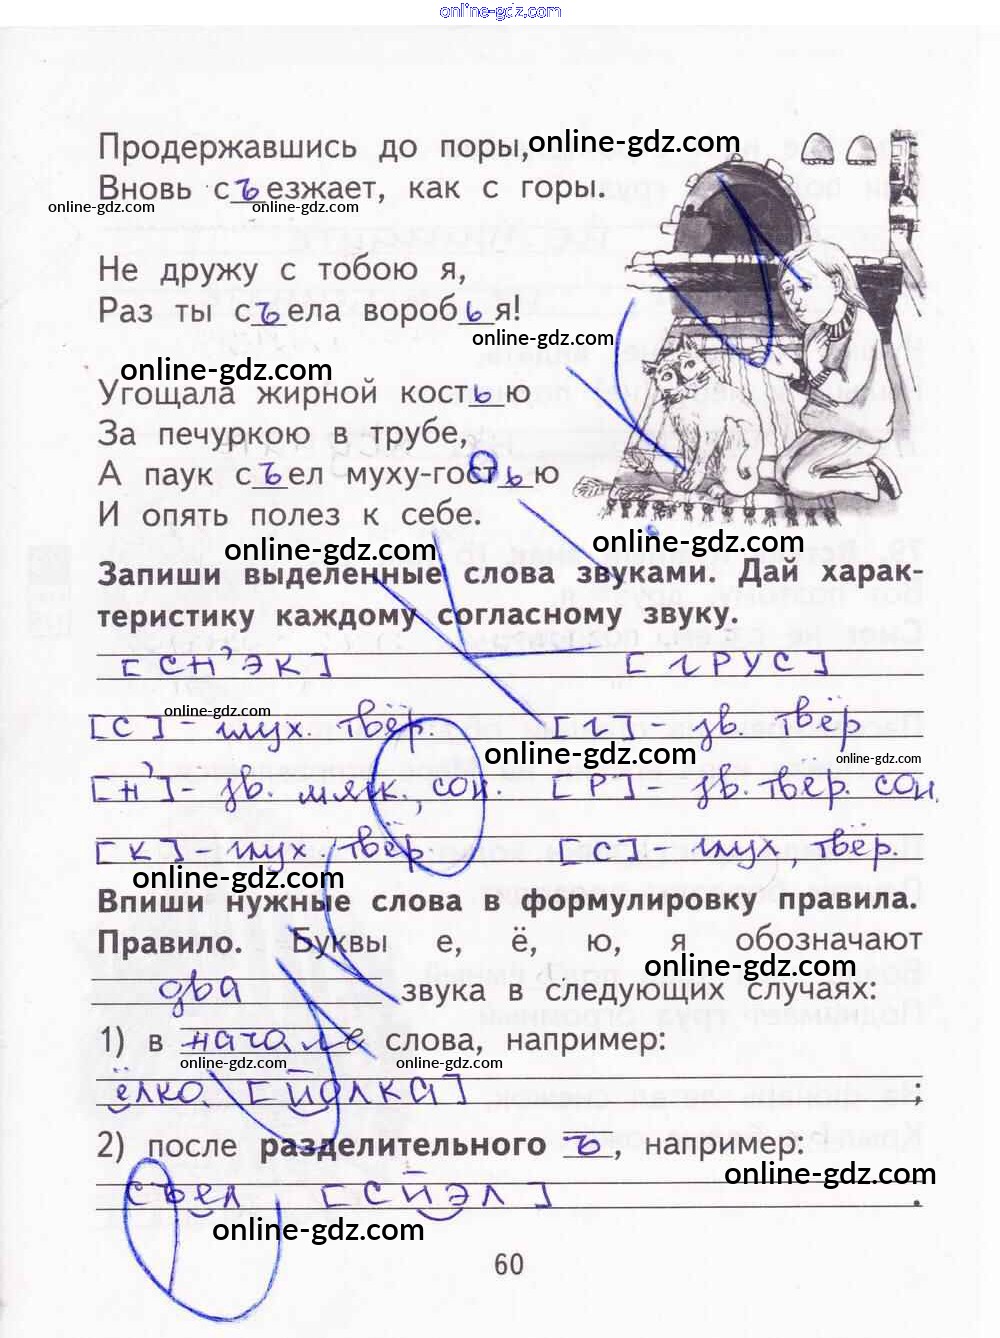 online-gdz.com
Продержавшись до поры, online-gdz.com
Вновь съезжает, как с горы.
online-gdz.com online-gdz.com
Не дружу с тобою я,
Раз ты съела воробья!
online-gdz.com
online-gdz.com
Угощала жирной костью
За печуркою в трубе,
А паук съел муху-гостью
И опять полез к себе.
online-gdz.com online-gdz.com
Запиши выделенные слова звуками. Дай харак-
теристику каждому согласному звуку.
[СН'ЭК] [ГРУС]
online-gdz.com
[С] - глух. твёр. [Г] - зв. твёр
online-gdz.com online-gdz.com
[Н'] - зв. мягк., сон. [Р] - зв. твер. сон.
[К] - глух твёр [С] - глух, твёр.
online-gdz.com
Впиши нужные слова в формулировку правила.
Правило. Буквы е, ё, ю, я обозначают
online-gdz.com
два звука в следующих случаях:
1) в начале слова, например:
online-gdz.com online-gdz.com
ёлка [ЙОЛКА] ;
2) после разделительного ъ, например:
online-gdz.com
съел [СЙЭЛ] .
online-gdz.com
60